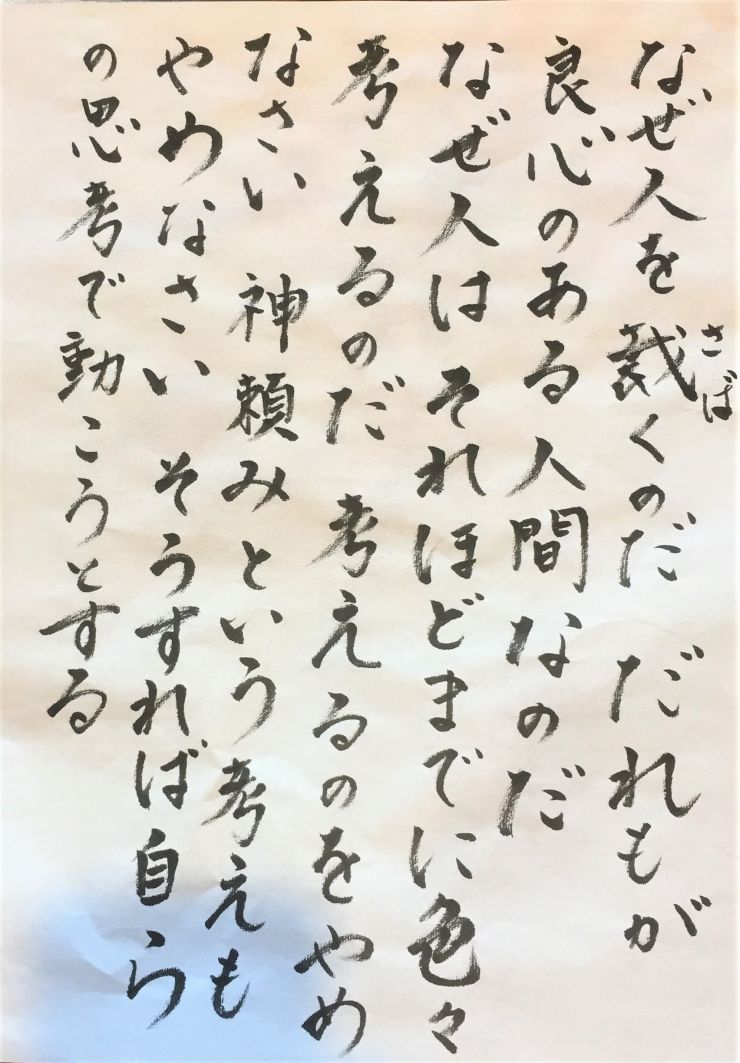 なぜ人を裁くのだ だれもが
さば
良心のある人間なのだ
なぜ人はそれほどまでに色々
考えるのだ 考えるのをやめ
なさい 神頼みという考えも
やめなさい そうすれば自ら
の思考で動こうとする